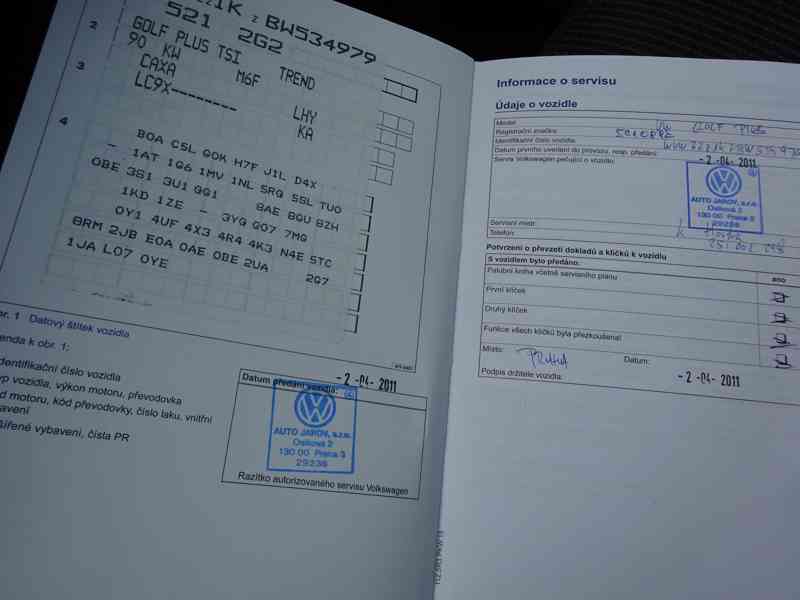 1K Z BW534979
521 2G2
2
GOLF PLUS TSI TREND
90 KW M6F
3
CAXA LHY
LC9X-------- KA
4
BOA C5L GOK H7F J1L D4X
- 1AT 1G6 1MV 1NL 5RG 5SL TUO
OBE 3S1 3U1 GG1 8AE BGU 8ZH
1KD 1ZE - 3YG QG7 7MG
OY1 4UF 4X3 4R4 4K3 N4E 5TC
8RM 2JB EOA OAE OBE 2UA 2G7
1JA LO7 OYE
br. 1 Datový štítek vozidla
enda k obr. 1:
dentifikační číslo vozidla
yp vozidla, výkon motoru, převodovka
d motoru, kód převodovky, číslo laku, vnitřní
avení
šířené vybavení, čísla PR
Datum předání vozidla:
-2-04-2011
AUTO JAROV, s.r.o.
Osiková 2
130 00 Praha 3
29236
Razítko autorizovaného servisu Volkswagen
Informace o servisu
Údaje o vozidle
Model: VW GOLF PLUS
Registrační značka:
Identifikační číslo vozidla:
Datum prvního uvedení do provozu, resp. předání:
-2-04-2011
Servis Volkswagen pečující o vozidlo:
AUTO JAROV, s.r.o.
Osiková 2
130 00 Praha 3
29236
Servisní mistr:
Telefon:
Potvrzení o převzetí dokladů a klíčků k vozidlu
S vozidlem bylo předáno: ano
Palubní kniha včetně servisního plánu
První klíček
Druhý klíček
Funkce všech klíčků byla přezkoušena!
Místo: PRAHA Datum: -2-04-2011
Podpis držitele vozidla: